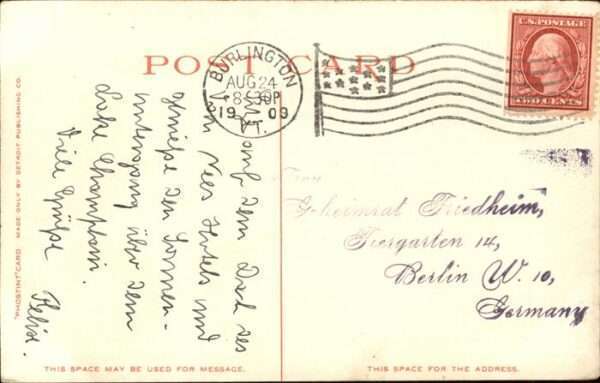 POST CARD
BURLINGTON
AUG 24
8-30P
1909
VT.
U.S. POSTAGE
TWO CENTS
auf dem Dach des
Hotels und
genieße den Sonnen-
untergang über dem
Lake Champlain.
Viele Grüße
Felix.
Geheimrat Friedheim,
Tiergarten 14,
Berlin W. 10,
Germany
"PHOSTINT" CARD MADE ONLY BY DETROIT PUBLISHING CO.
THIS SPACE MAY BE USED FOR MESSAGE.
THIS SPACE FOR THE ADDRESS.